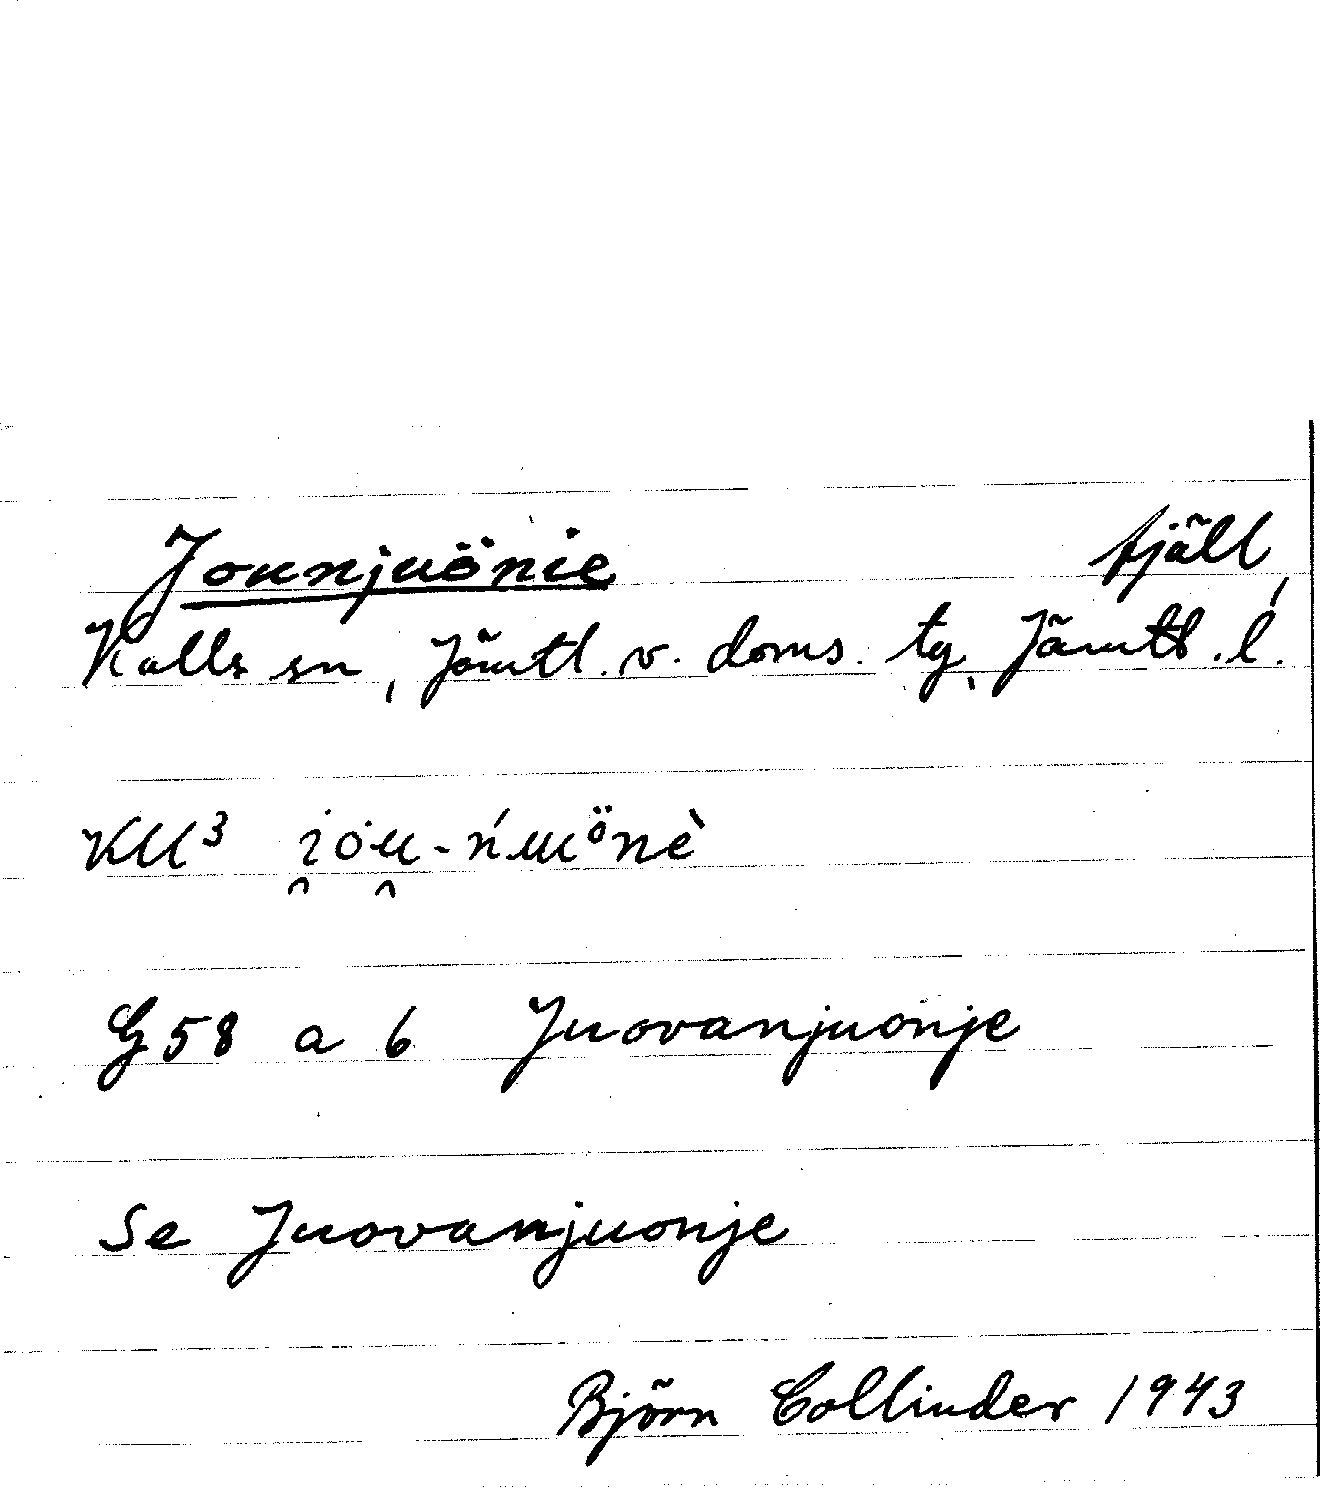 Jounjuönie fjäll,
Kalls sn, Jämtl. v. doms. tg, Jämtl. l.
KU³ i̯ȯu̯-ńuuönè
G58 a 6 Juovanjuonje
Se Juovanjuonje
Björn Collinder 1943